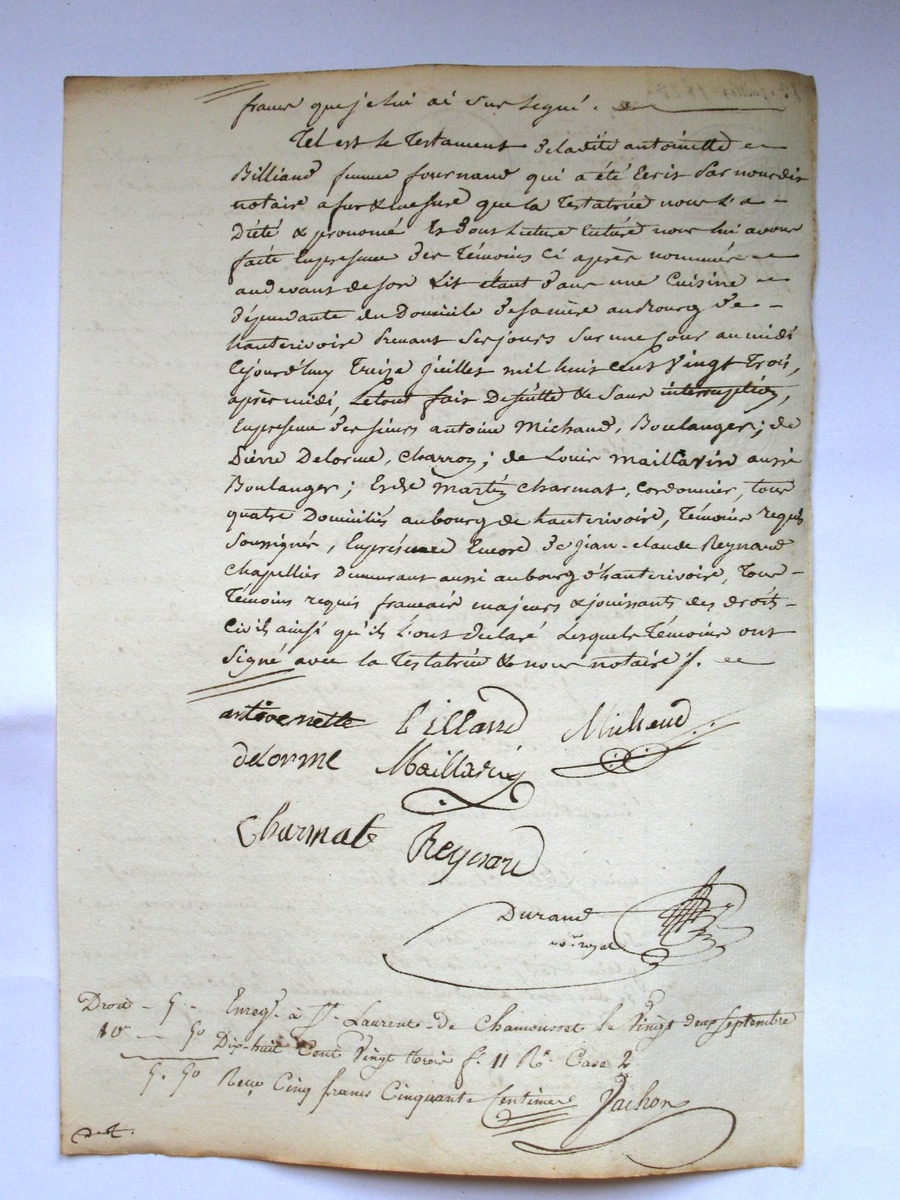 francs que je lui ai sur legué.
Tel est le Testament de ladite antoinette
Billiand femme fournand qui a été Ecrit Par nous dit
notaire a fur & mesure que la Testatrice nous l'a
Dicté & prononcé Et dont lecture Entière nous lui avons
faite En presence des Témoins Ci après nommés
au devant de son Lit étant dans une Cuisine
dépendante du Domicile de sa mère au Bourg de
hauterivoire Prenant ses jours sur une Cour au midi
Cejourd'huy Treize juillet mil huit cent Vingt Trois,
après midi, Le tout fait De suitte & Sans interruption,
En presence des sieurs antoine Michaud, Boulanger; de
Pierre Delorme, Charron; de Louis Maillavin aussi
Boulanger; Et de Martin Charmat, Cordonnier, tous
quatre Domiciliés au bourg de hauterivoire, Témoins requis
Soussignés, En présence Encore de jean-claude Reynard
Chapellier Demeurant aussi au bourg d'hauterivoire, Tous
Témoins requis francais majeurs & jouissants des droits
Civils ainsi qu'ils l'ont déclaré Lesquels Témoins ont
Signé avec la Testatrice & nous notaire /.
antoenette billand Michaud
delorme Maillavin
Charmat Reynard
Durand
no.re royal
Droit - 5 - Enreg.é à St. Laurent-de Chamousset le Vingt deux septembre
10e - 50 Dix-huit Cent Vingt trois f.o 11 R.o Case 2
5. 50 Reçu Cinq francs Cinquante Centimes Vachon